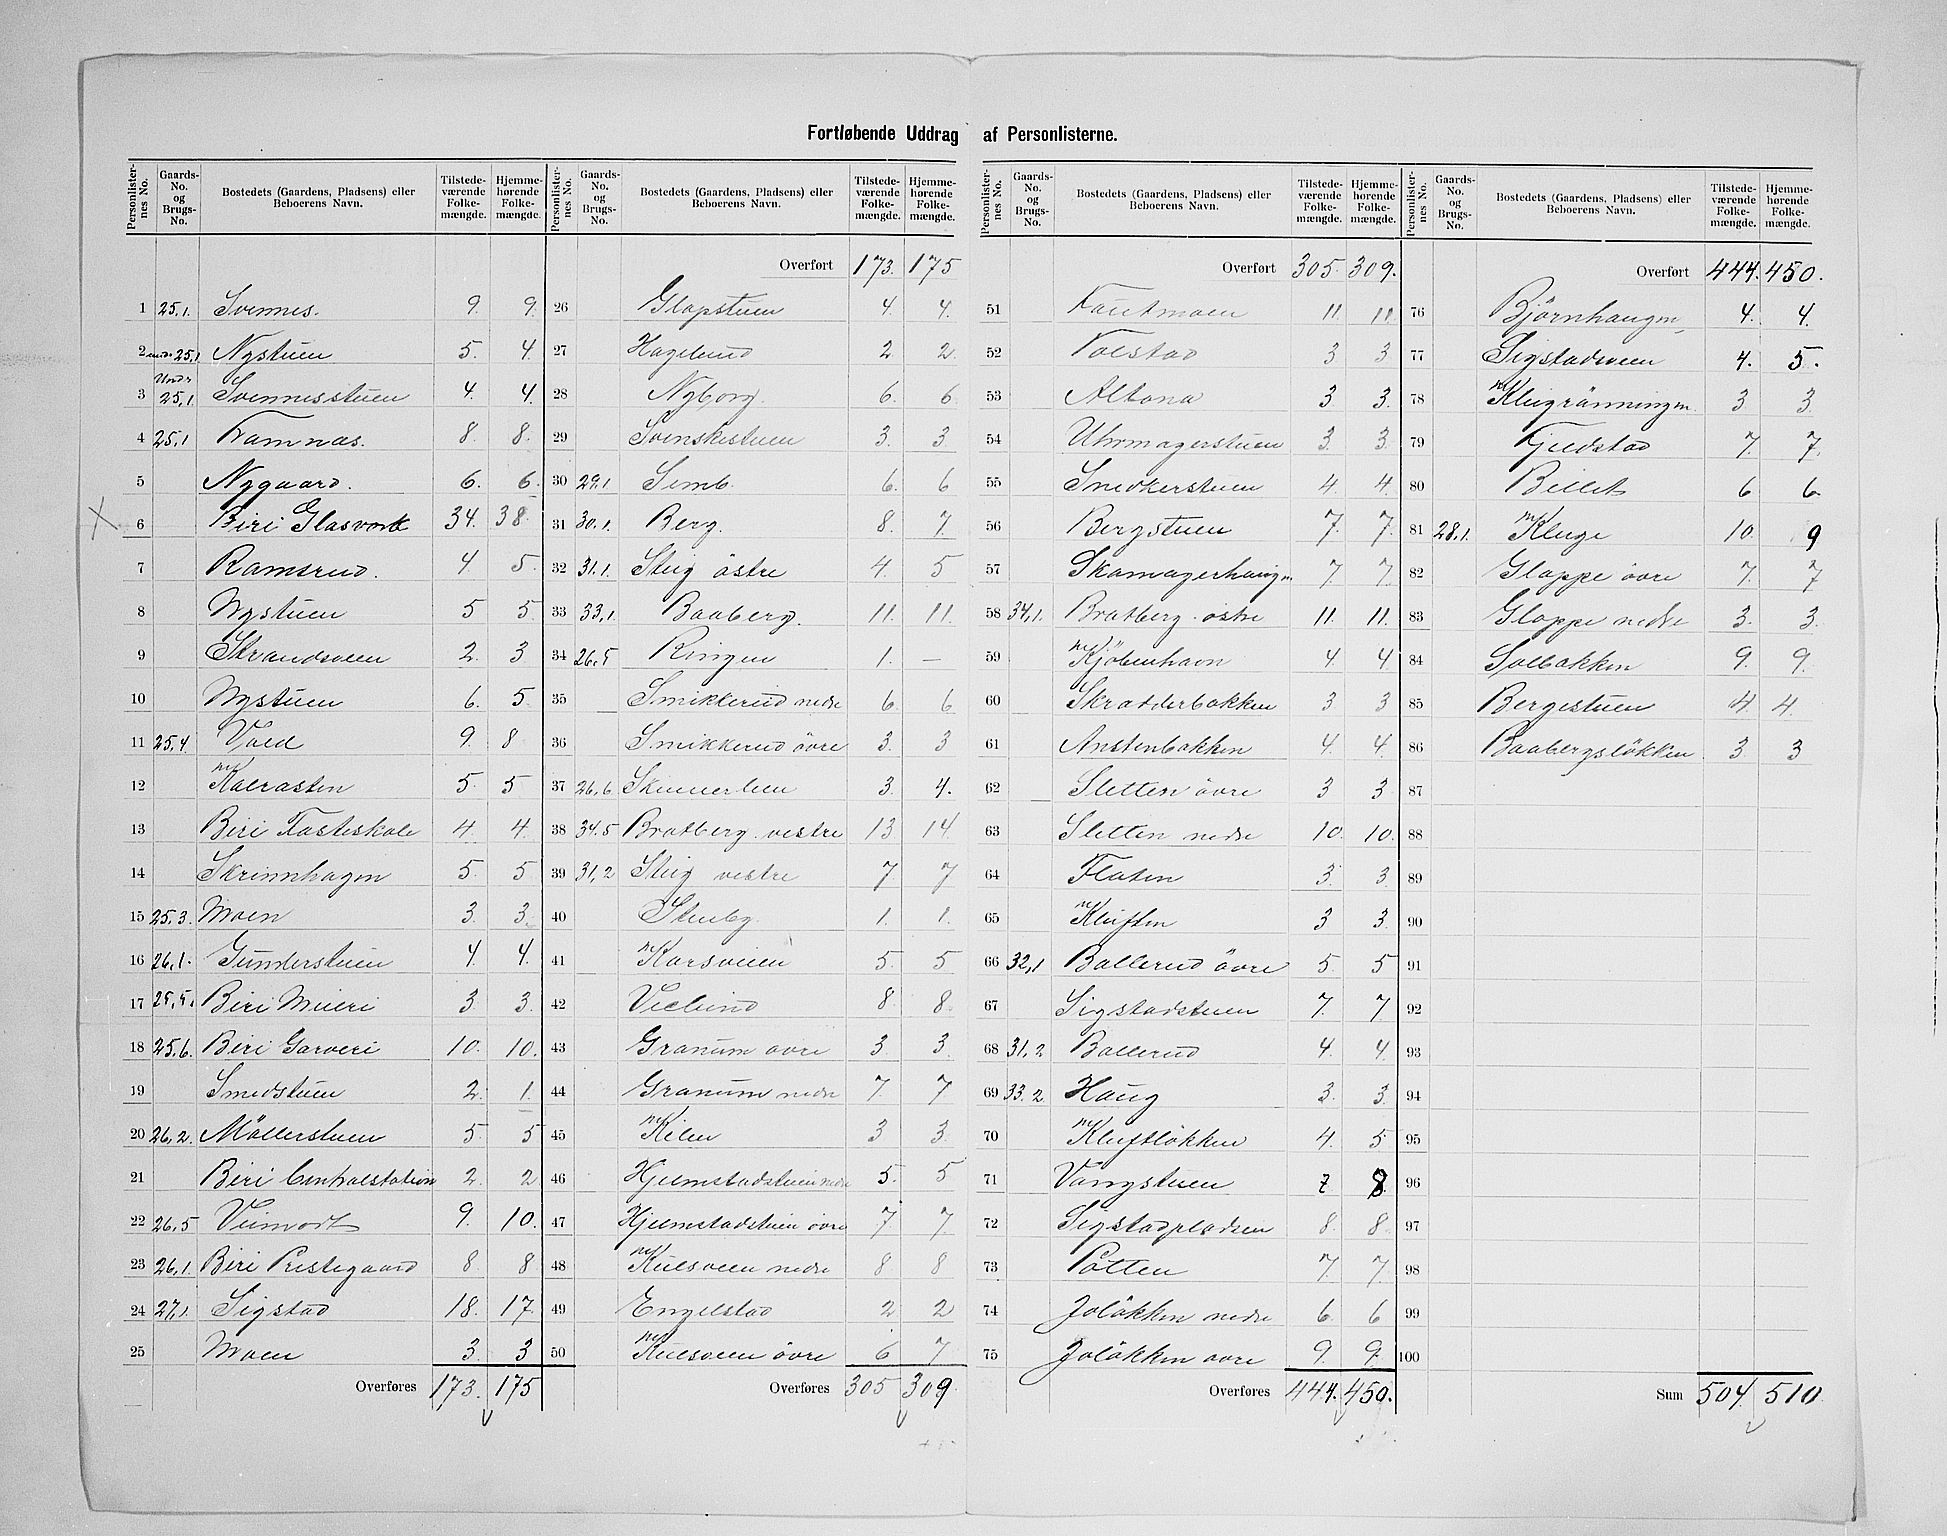 Fortløbende Uddrag af Personlisterne.
Personlister-nes No. Gaards-No. og Brugs-No. Bostedets (Gaardens, Pladsens) eller Beboerens Navn. Tilstede-værende Folke-mængde. Hjemme-hørende Folke-mængde.
1 25,1. Svennes. 9. 9.
2 under 25,1 Nystuen 5. 4.
3 Under 25,1. Svennesstuen 4. 4.
4 25,1 Framnæs. 8. 8.
5 Nygaard. 6. 6.
6 Biri Glasværk 34. 38.
7 Ramsrud. 4 5.
8 Nystuen 5 5.
9 Strandveien 2. 3
10 Nystuen 6. 5.
11 25,4. Vold 9. 8
12 Kalrasten 5. 5
13 Biri Fasteskole 4. 4.
14 Skrinnhagen 5. 5
15 25,3. Moen 3. 3.
16 26,1. Gunderstuen 4. 4.
17 25,5. Biri Meieri 3. 3.
18 25,6. Biri Garveri 10. 10.
19 Smedstuen 2. 1.
20 26,2. Möllerstuen 5. 5
21 Biri Centralstation 2. 2
22 26,5 Veimodt 9. 10.
23 26,1. Biri Prestegaard 8. 8
24 27,1. Sigstad 18. 17.
25 Moen 3. 3
Overføres 173. 175
Personlister-nes No. Gaards-No. og Brugs-No. Bostedets (Gaardens, Pladsens) eller Beboerens Navn. Tilstede-værende Folke-mængde. Hjemme-hørende Folke-mængde.
Overført 173. 175
26 Glapstuen 4. 4.
27 Hagelund 2 2.
28 Nyborg. 6. 6.
29 Svenskestuen 3. 3.
30 29,1 Semb. 6. 6
31 30,1. Berg. 8. 7.
32 31.1. Steig östre 4. 5
33 33,1. Baaberg. 11. 11.
34 26,5 Ringen 1. —
35 Smikkerud nedre 6. 6
36 Smikkerud övre 3. 3
37 26,6. Skumerlien 3. 4.
38 34.5 Bratberg vestre 13 14
39 31,2 Steig vestre 7 7
40 Stenby. 1. 1.
41 Korsveien 5. 5
42 Veelund 8. 8.
43 Granum övre 3. 3.
44 Granum nedre 7. 7
45 Kilen 3 3.
46 Hjelmstadstuen nedre 5. 5
47 Hjelmstadstuen övre 7. 7.
48 Kulsveen nedre 8 8
49 Engelstad 2 2
50 Kulsveen övre 6 7
Overføres 305 309.
Personlister-nes No. Gaards-No. og Brugs-No. Bostedets (Gaardens, Pladsens) eller Beboerens Navn. Tilstede-værende Folke-mængde. Hjemme-hørende Folke-mængde.
Overført 305. 309.
51 Fautmoen 11. 11.
52 Tolstad 3 3
53 Altona 3 3.
54 Uhrmagerstuen 3. 3.
55 Snedkerstuen 4. 4.
56 Bergstuen 7. 7.
57 Skomagerhaugen 7 7.
58 34,1. Bratberg östre 11. 11.
59 Kjöbenhavn 4. 4
60 Skrædderbakken 3. 3
61 Anstenbakken 4. 4.
62 Sletten övre 3 3.
63 Sletten nedre 10. 10.
64 Flaten 3. 3.
65 Kluften 3 3.
66 32,1 Ballerud övre 5. 5
67 Sigstadstuen 7. 7
68 31,2 Ballerud 4. 4
69 33.2. Haug 3. 3.
70 Kluftlökken 4. 5
71 Vangstuen 7 8
72 Sigstadpladsen 8. 8.
73 Potten 7. 7.
74 Jolökken nedre 6. 6
75 Jolökken övre 9. 9.
Overføres 444. 450.
Personlister-nes No. Gaards-No. og Brugs-No. Bostedets (Gaardens, Pladsens) eller Beboerens Navn. Tilstede-værende Folke-mængde. Hjemme-hørende Folke-mængde.
Overført 444. 450.
76 Björnhaugen 4. 4.
77 Sigstadveen 4. 5.
78 Klugrönningen 3. 3.
79 Fjeldstad 7. 7.
80 Billet 6 6.
81 28,1. Kluge 10. 9
82 Gloppe övre 7. 7
83 Gloppe nedre 3. 3.
84 Solbakken 9. 9.
85 Bergestuen 4. 4.
86 Baabergslökken 3 3
87
88
89
90
91
92
93
94
95
96
97
98
99
100
Sum 504. 510